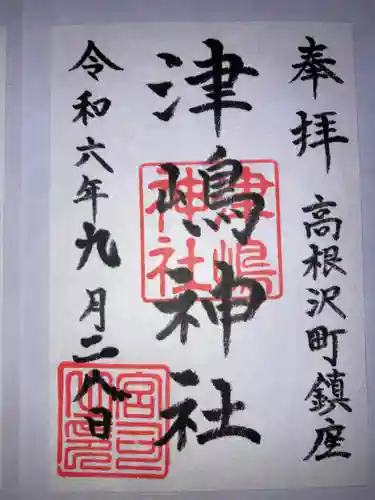 奉拝 高根沢町鎮座
津嶋神社
津嶋神社
令和六年九月二八日